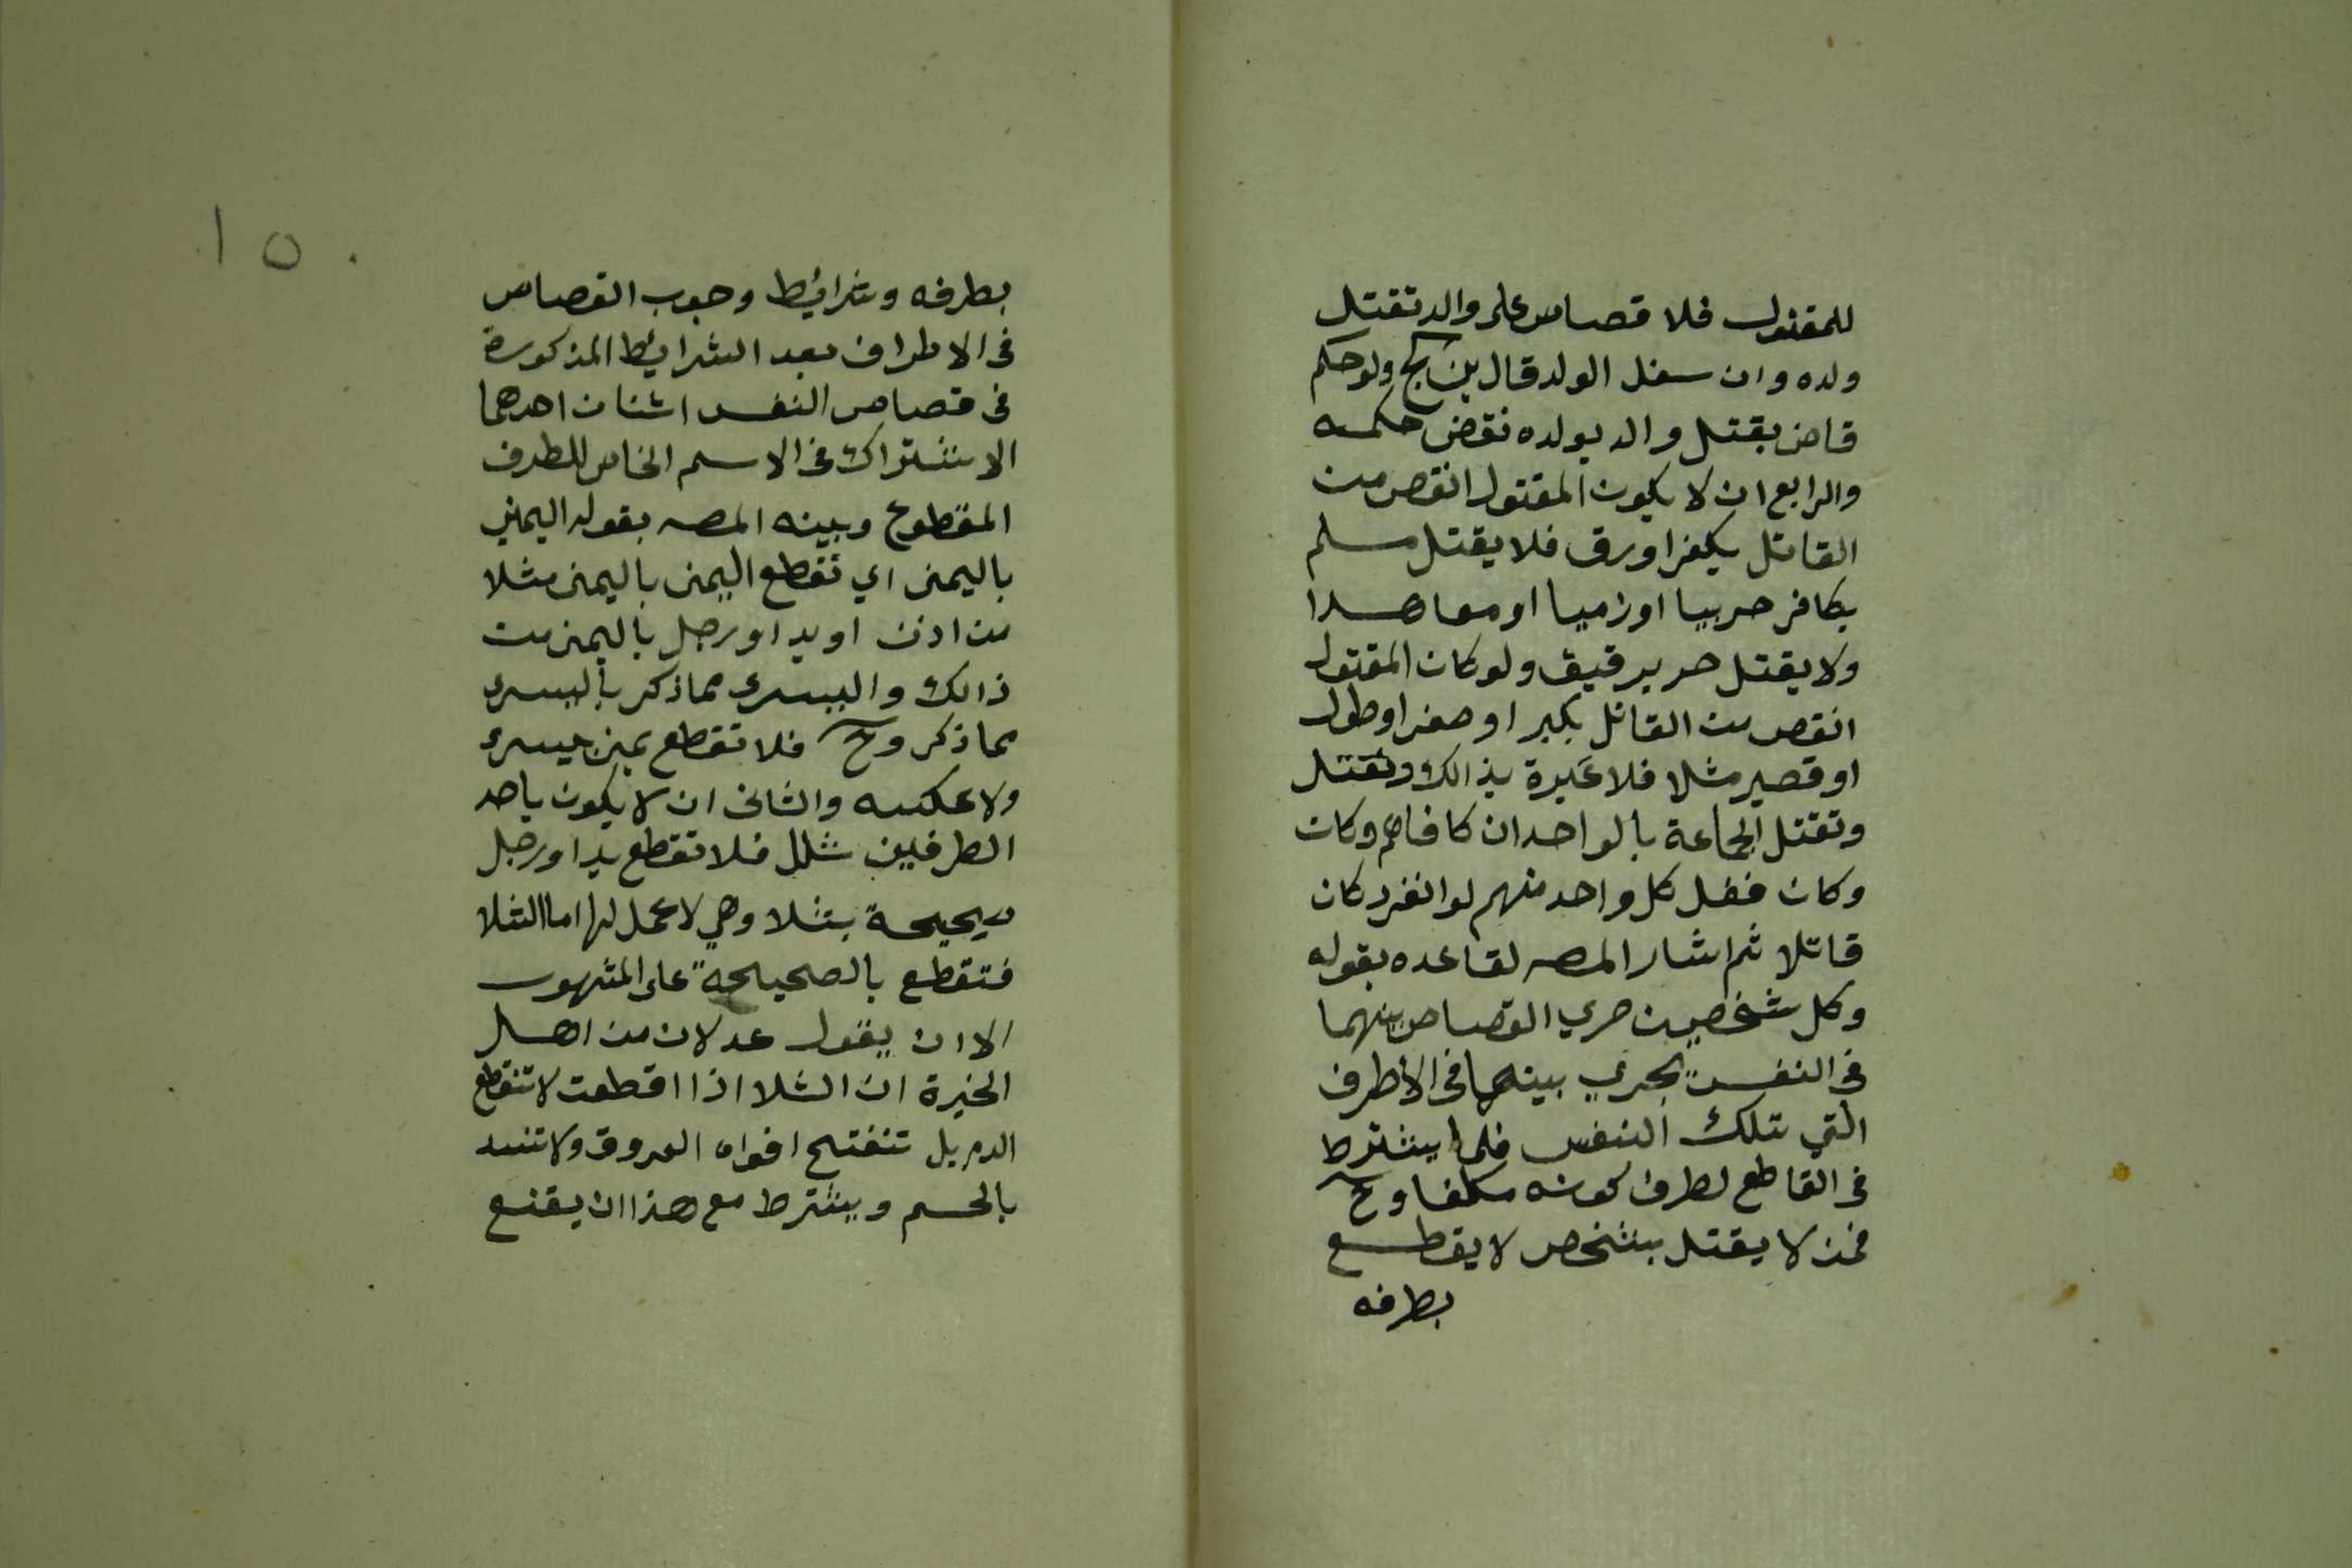 للمقتول فلا قصاص على والد تقتل
ولده وان سفل الولد قال بن كج ولو حكم
قاض بقتل والد بولده نقض حكمه
والرابع ان لا يكون المقتول انقص من
القاتل بكفر او رق فلا يقتل مسلم
بكافر حربيا او زميا او معاهدا
ولا يقتل حر برقيق ولو كان المقتول
انقص من القاتل بكبر او صغر او طول
او قصير مثلا فلا عبرة بذالك وتقتل
وتقتل الجماعة بالواحد ان كافاهم وكان
وكان فعل كل واحد منهم لو انفرد كان
قاتلا ثم اشار المصه لقاعده بقوله
وكل شخصين جري القصاص بينهما
فى النفس يجري بينهما فى الاطرف
التي تلك النفس فلما يشترط
فى القاطع لطرف كونه مكلفا وح
فمن لا يقتل بشخص لا يقطع
بطرفه
١٥٠
بطرفه وشرائيط وجوب القصاص
فى الاطراف بعد الشرائيط المذكورة
فى قصاص النفس اثنان احدهما
الاشتراك فى الاسم الخاص للطرف
المقطوع وبينه المصه بقوله اليمنى
باليمنى اي تقطع اليمنى باليمنى مثلا
من اذن او يد او رجل باليمنى من
ذالك واليسرى مما ذكر باليسرى
مما ذكر وح فلا تقطع يمنى بيسرى
ولا عكسه والثانى ان لا يكون باحد
الطرفين شلل فلا تقطع يد او رجل
صحيحة بشلا وهي لا عمل لها اما الشلا
فتقطع بالصحيحة على المشهور
الا ان يقول عدلان من اهل
الخبرة ان الشلا اذا اقطعت لا تنقطع
الدم بل تنفتح افواه العروق ولا تنسد
بالحسم ويشترط مع هذا ان يقنع